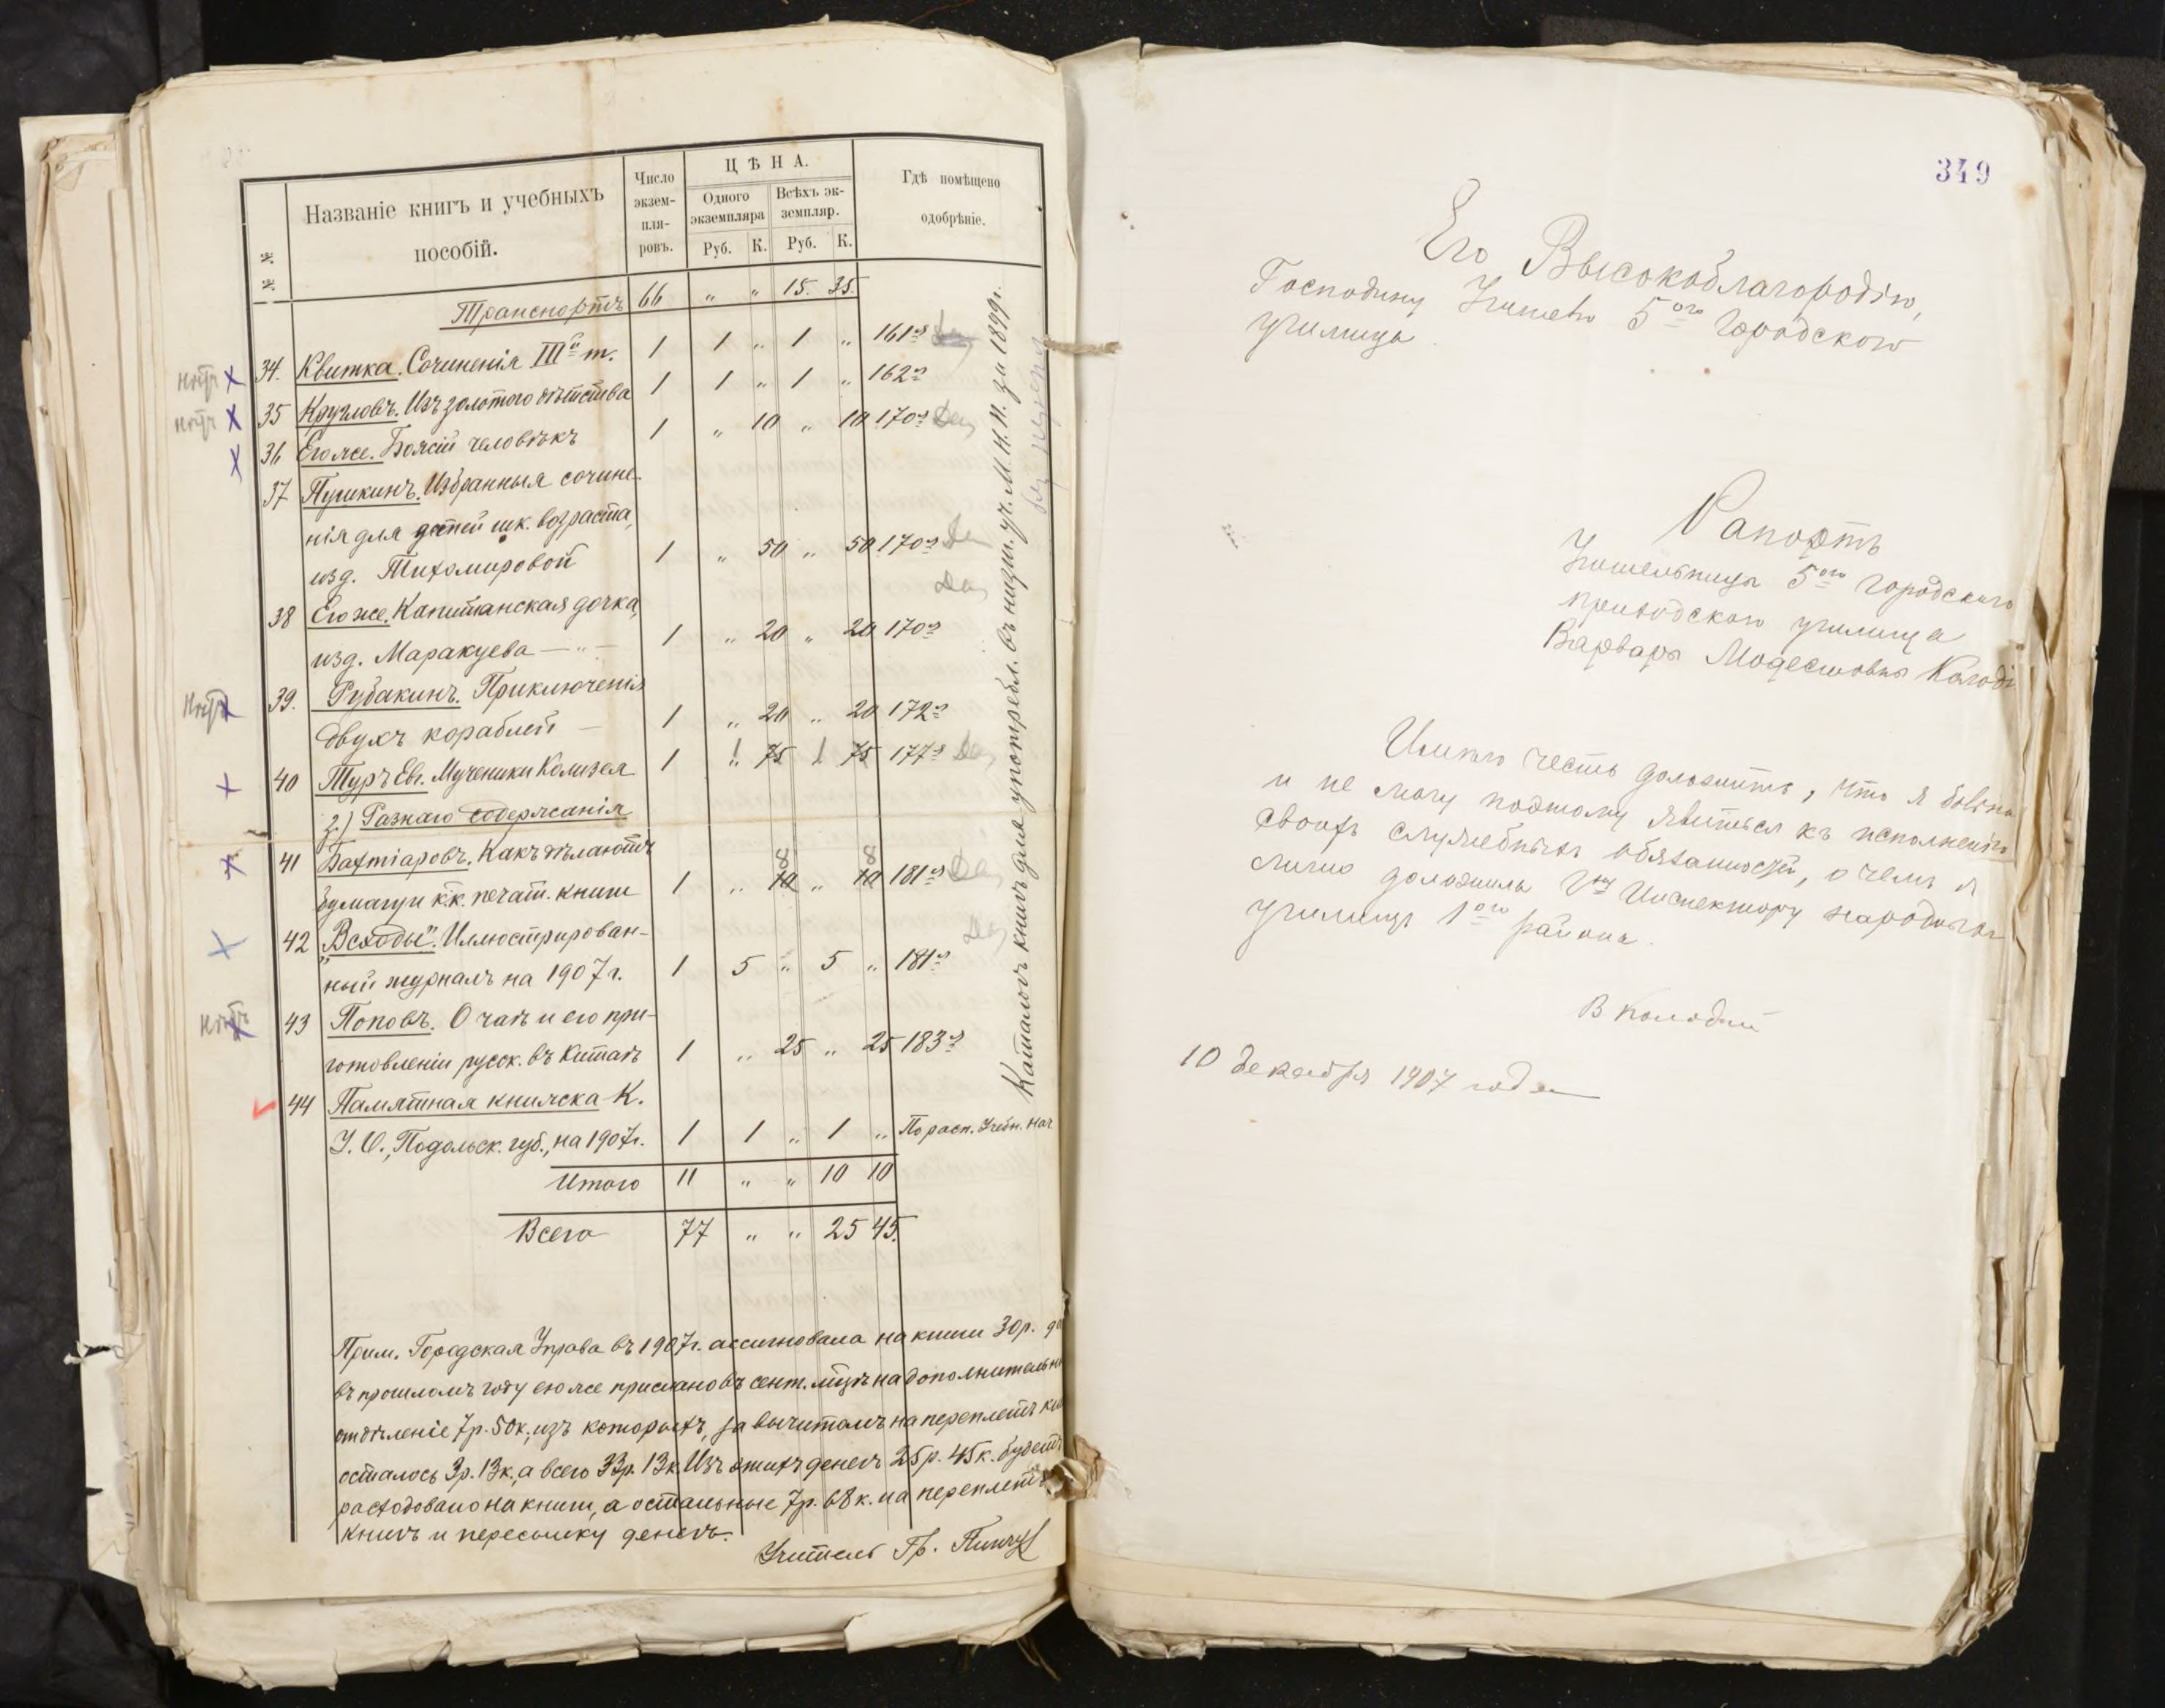 № №
Названіе книгъ и учебныхъ
пособій.
Число
экзем-
пля-
ровъ.
ЦѢНА.
Одного
экземпляра
Всѣхъ эк-
земпляр.
Руб. К. Руб. К.
Гдѣ помѣщено
одобрѣніе.
Транспортъ 66 „ „ 15. 35.
34. Квитка. Сочиненія IIIй т. 1 1 „ 1 „ 161
35 Кругловъ. Изъ золотого дѣтства 1 1 „ 1 „ 162
36 Его же. Божій человѣкъ 1 „ 10 „ 10 170
37 Пушкинъ. Избранныя сочине-
нія для дѣтей шк. возраста,
изд. Тихомировой 1 „ 50 „ 50 170
38 Его же. Капитанская дочка,
изд. Маракуева — „ — 1 „ 20 „ 20 170
39. Рубакинъ. Приключенія
двухъ кораблей — 1 „ 20 „ 20 172
40 Туръ Ев. Мученики Колизея 1 75 75 177
2) Разнаго содержанія
41 Бахтіаровъ. Какъ дѣлаютъ
бумагу и к.к. печат. книги 1 „ 10 „ 10 181
42 „Всходы". Иллюстрирован-
ный журналъ на 1907 г. 1 5 „ 5 „ 181
43 Поповъ. О чаѣ и его при-
готовленіи русск. въ Китаѣ 1 „ 25 „ 25 183
44 Памятная книжка К.
У. О., Подольск. губ., на 1907г. 1 1 „ 1 „ По расп. Учебн. Нач
Итого 11 „ „ 10 10
Всего 77 „ „ 25 45.
Каталогъ книгъ для употребл. въ низш. уч. М. Н. П. за 1899г.
Прим. Городская Управа въ 1907г. ассигновала на книги 30р. да
въ прошломъ году ею же прислано въ сент. мцѣ на дополнительн
отдѣленіе 7р. 50к., изъ которыхъ, за вычитомъ на переплетъ кни
осталось 3р. 13к., а всего 33р. 13к. Изъ этихъ денегъ 25р. 45к. будетъ
расходовано на книги, а остальные 7р. 68к. на переплетъ
книгъ и пересылку денегъ.
Учитель Гр.
349
Его Высокоблагородію,
Господину Учителю 5ого Городского
училища.
Рапортъ
Учительницы 5ого городского
приходского училища
Варвары Модестовны
Имѣю честь доложить, что я больна
и не могу поэтому явиться къ исполненію
своихъ служебныхъ обязанностей, о чемъ я
лично доложила Гну Инспектору народныхъ
училищъ 1ого района.
10 декабря 1907 года